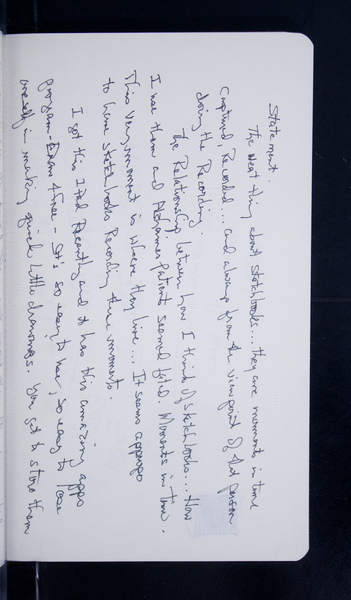 Statement.
The neat thing about sketchbooks... they are moments in time
Captured, Recorded... and always from the viewpoint of that person
doing the Recording.
The Relationship between how I think of sketchbooks... How
I use them and Alzheimers Patients seemed fated. Moments in Time.
This very moment is where they live... It seems appropo
to have sketchbooks Recording these moments.
I got this I Pad Recently and it has this amazing apps
program - Draw 4 free - It's so easy to use, so easy to lose
oneself in making quick little drawings. You get to store them